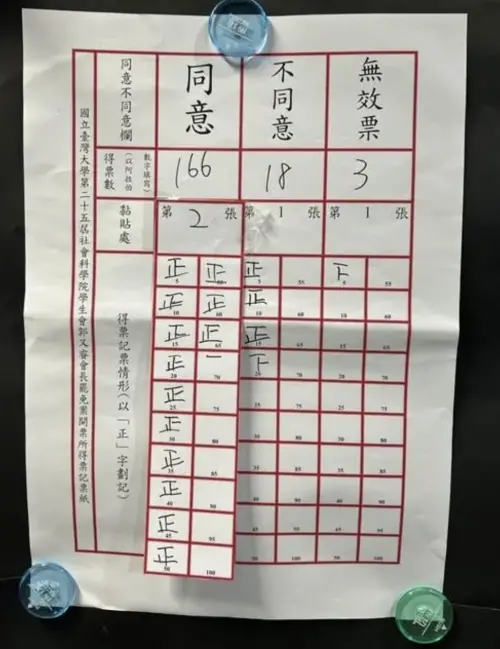 國立臺灣大學第二十五屆社會科學院學生會郭又會長罷免案開票所得票記票紙
同意不同意欄 同意 不同意 無效票
得票數(以阿拉伯數字填寫) 166 18 3
黏貼處 第2張 第1張 第1張
得票記票情形(以「正」字劃記)
正 正 正 下
5 55 5 55 5 55
正 正 正
10 60 10 60 10 60
正 正 正
15 65 15 65 15 65
正 一 下
20 70 20 70 20 70
正
25 75 25 75 25 75
正
30 80 30 80 30 80
正
35 85 35 85 35 85
正
40 90 40 90 40 90
正
45 95 45 95 45 95
正
50 100 50 100 50 100